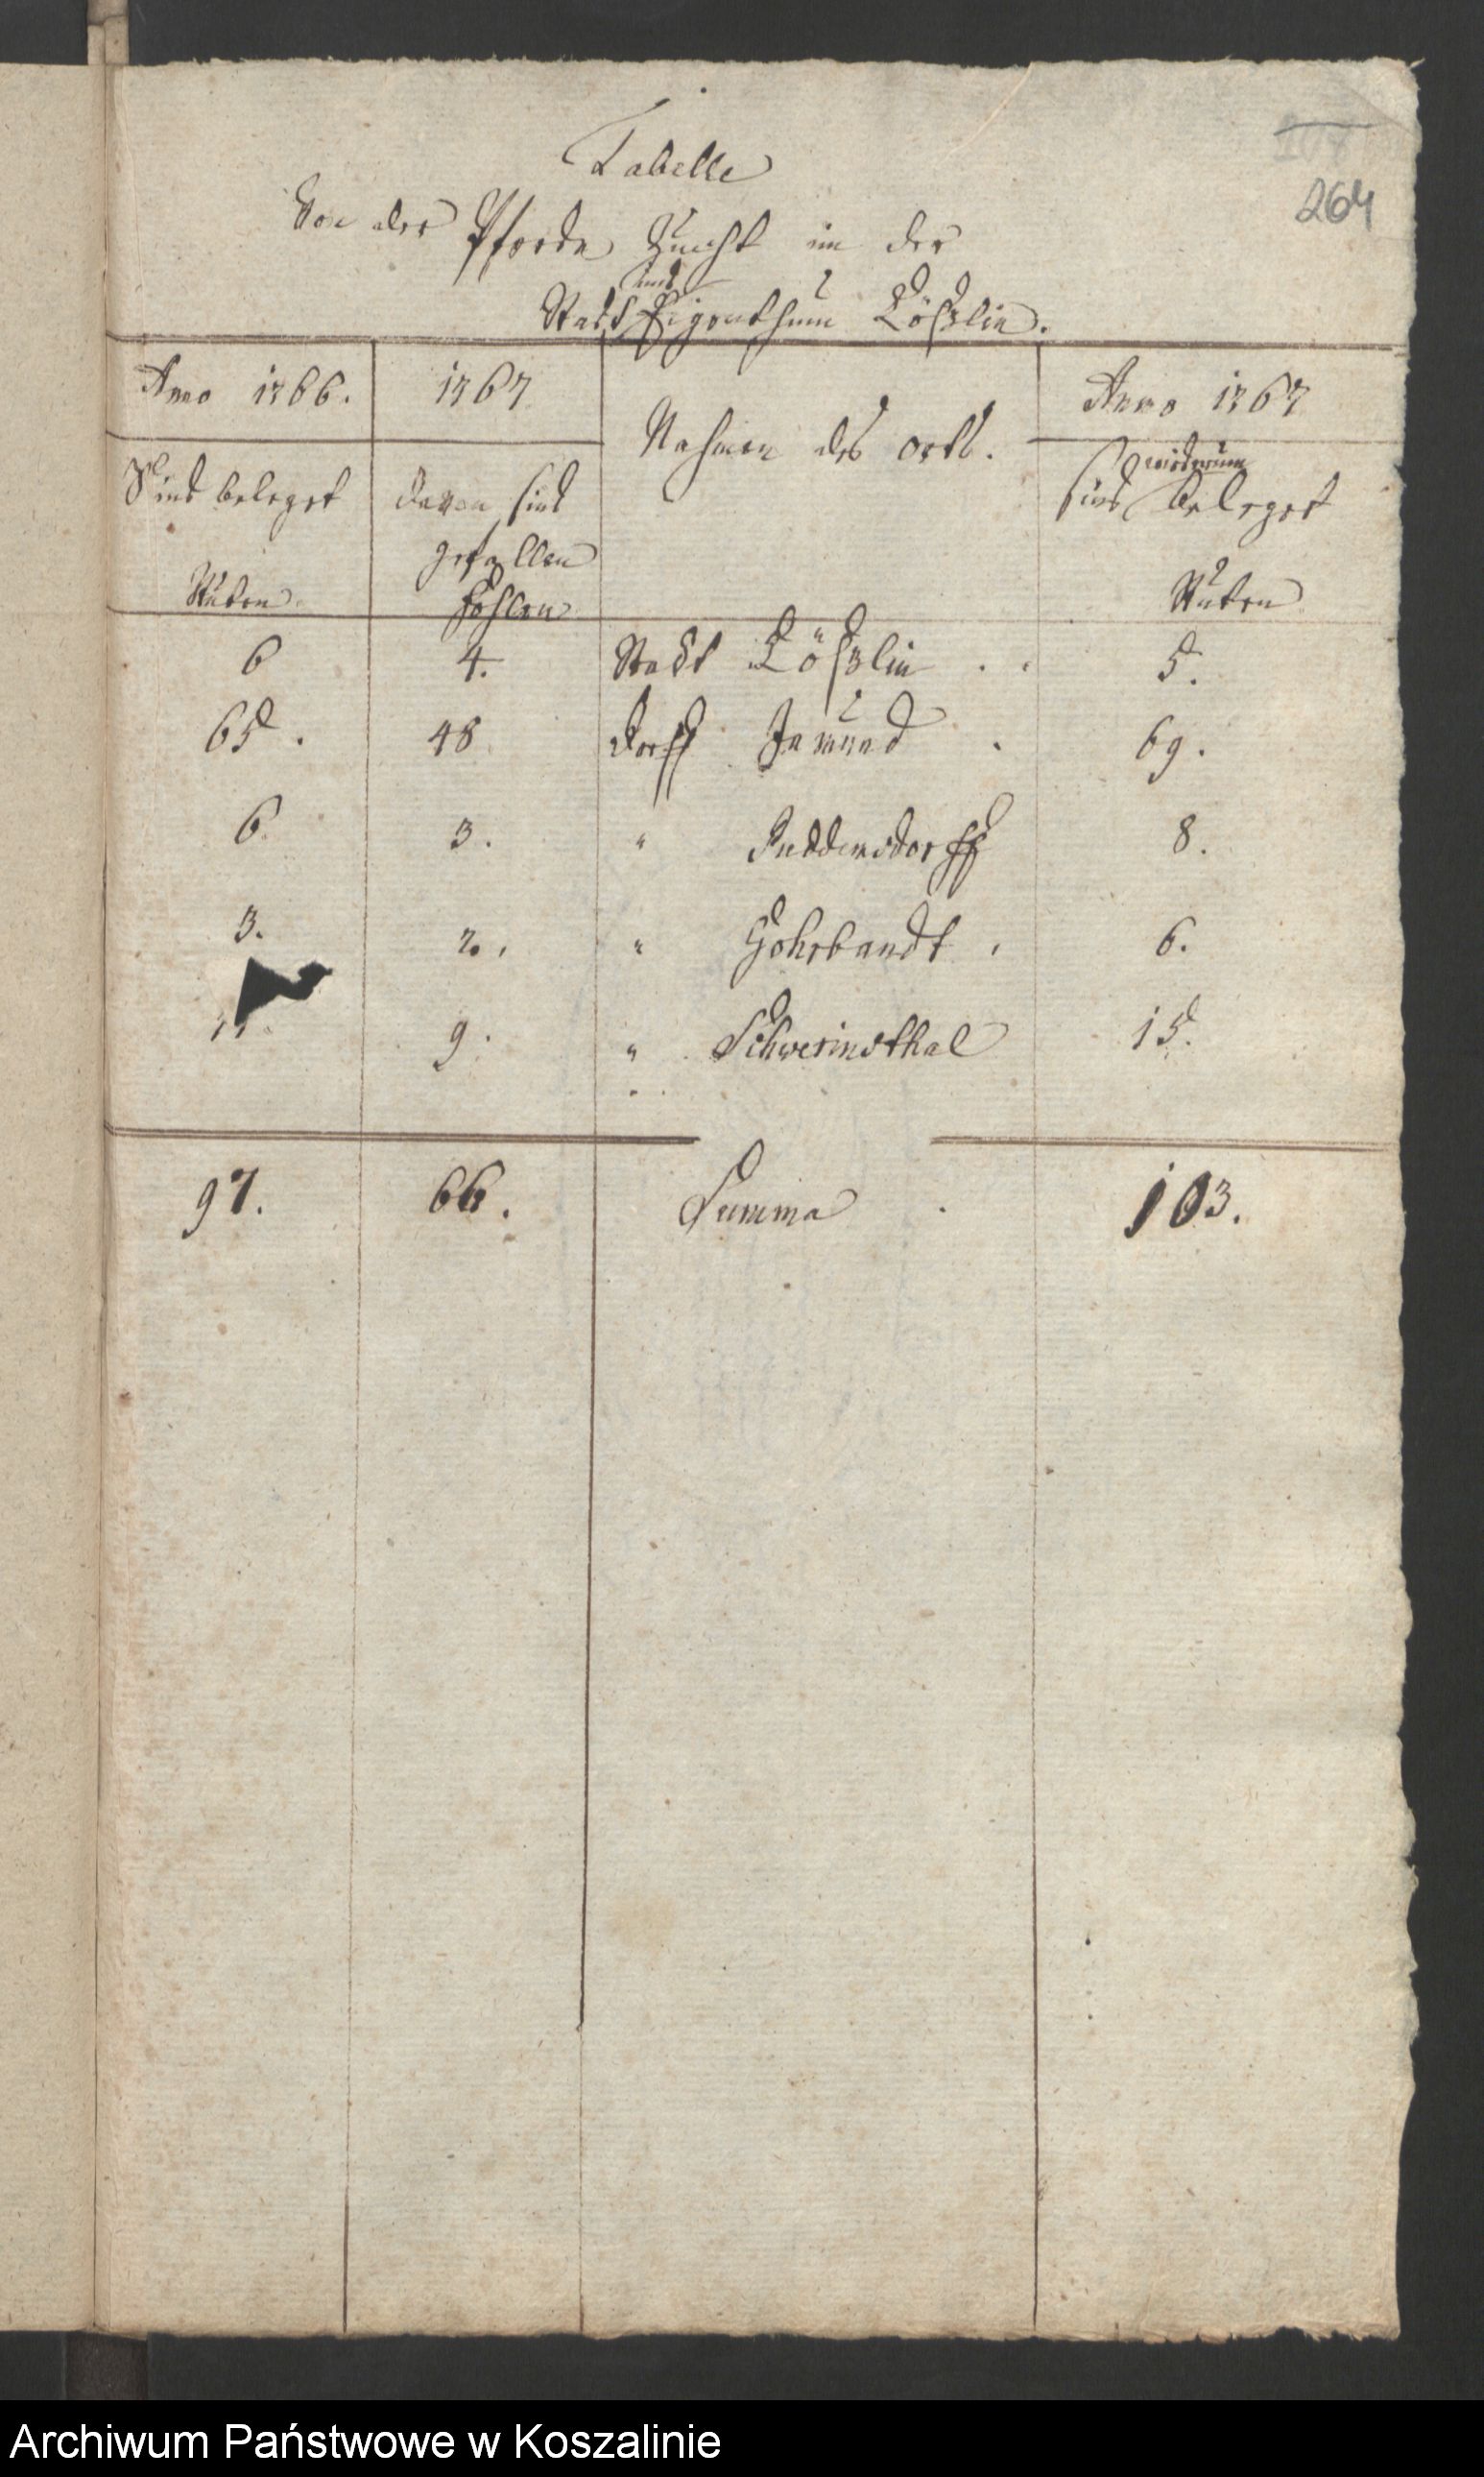 264
Tabelle
Von der Pferde Zucht in der
Stadt und Eigenthum Cößlin.
Anno 1766. 1767 Nahmen des orts. Anno 1767
Sind beleget davon sind gefallen sind wiederum beleget
Stuten Fohlen Stuten
6 4. Stadt Cößlin . . 5.
65. 48 dorff Jamund . 69.
6. 3. " Puddemsdorff 8.
3. 2. " Gohrbandt . 6.
9. " Schwerinsthal 15.
97. 66. Summa . 103.
Archiwum Państwowe w Koszalinie